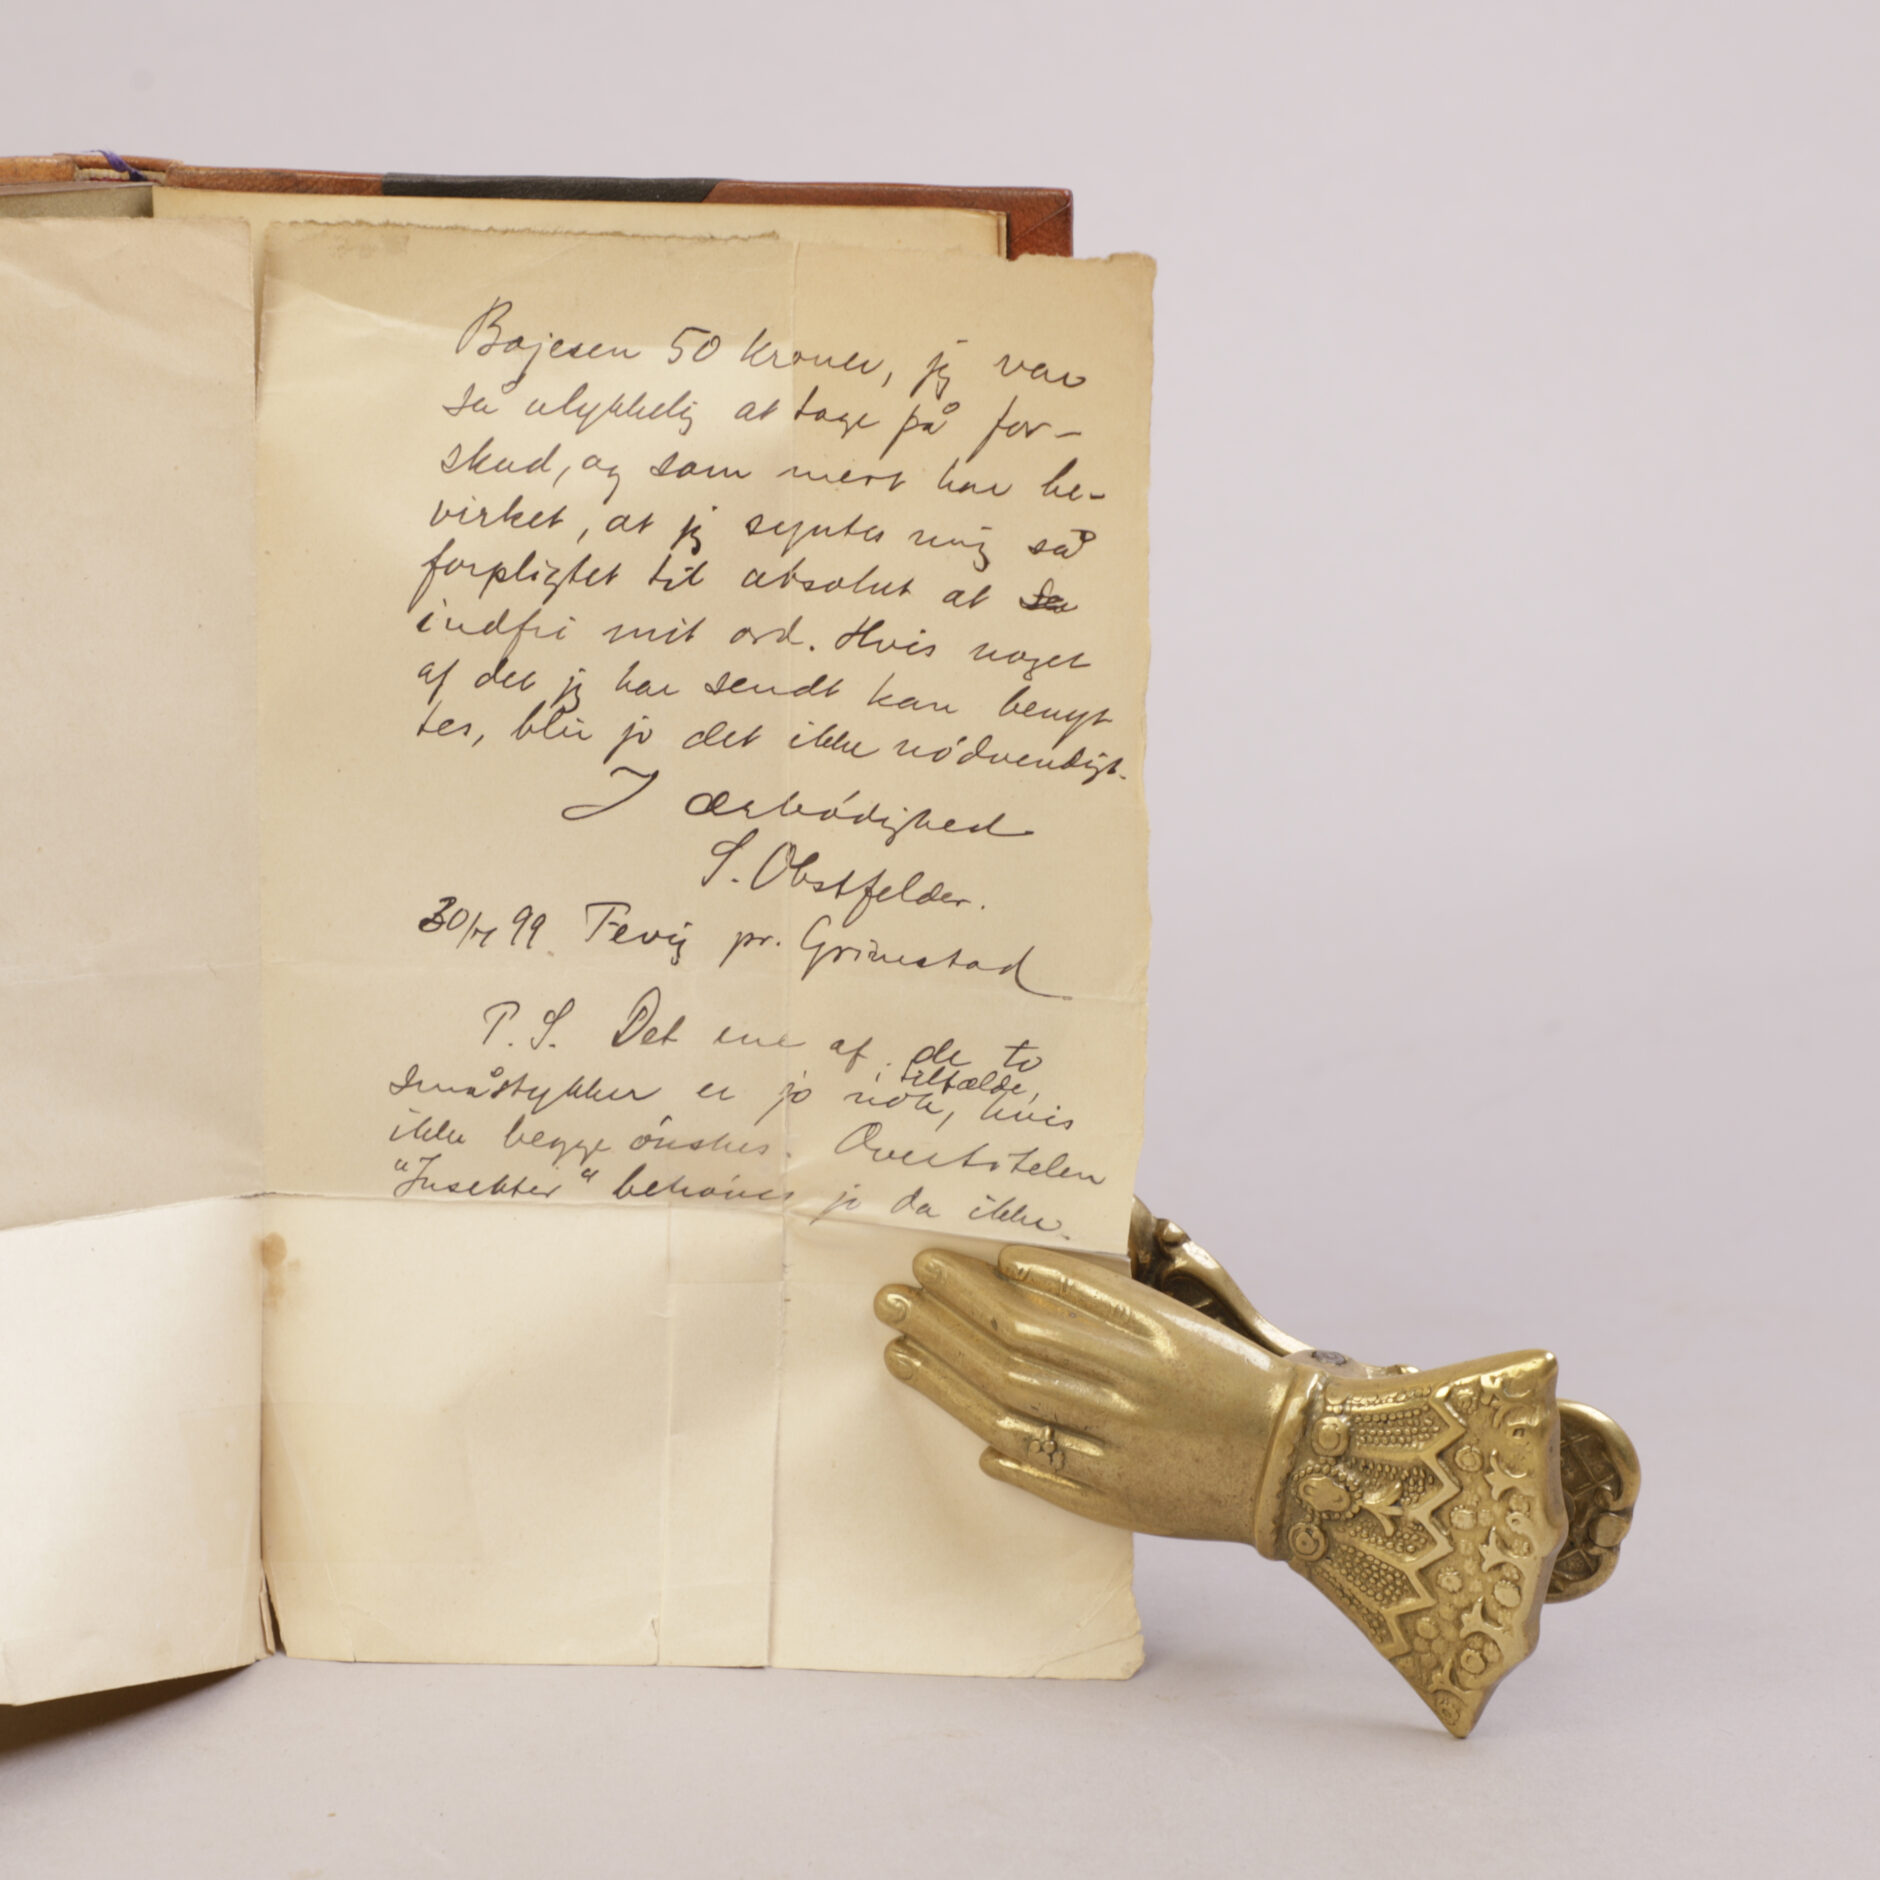 Bojesen 50 kroner, jeg var
så ulykkelig at tage på for-
skud, og som mest har be-
virket, at jeg syntes mig så
forpligtet til absolut at
indfri mit ord. Hvis noget
af det jeg har sendt kan benyt
tes, blir jo det ikke nødvendigt.
I ærbødighed
S. Obstfelder.
99 Fevig pr. Grimstad
P. S. Det ene af de to
i tilfælde,
småstykker er jo nok, hvis
ikke begge ønskes. Overtitelen
"Insekter" behøves jo da ikke.